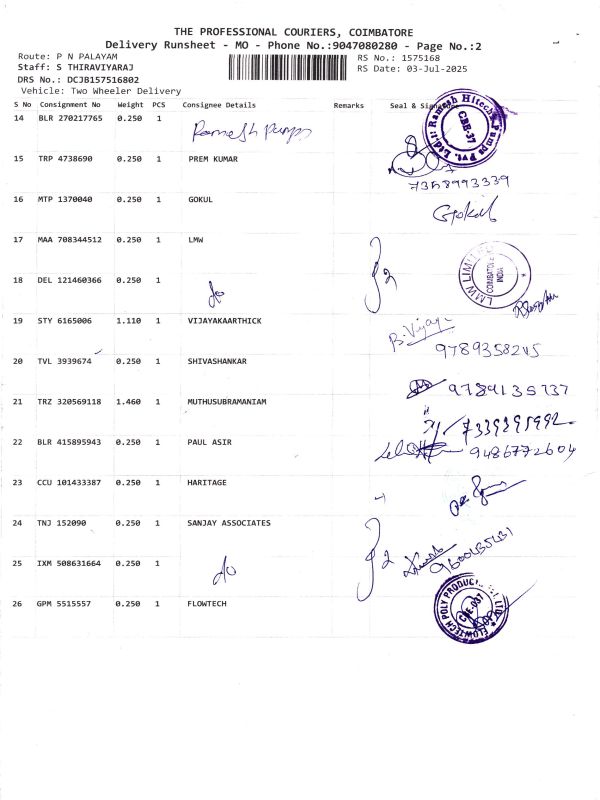 THE PROFESSIONAL COURIERS, COIMBATORE
Delivery Runsheet - MO - Phone No.:9047080280 - Page No.:2
Route: P N PALAYAM
RS No.: 1575168
Staff: S THIRAVIYARAJ
RS Date: 03-Jul-2025
DRS No.: DCJB157516802
Vehicle: Two Wheeler Delivery
S No Consignment No Weight PCS Consignee Details Remarks Seal &
14 BLR 270217765 0.250 1 Ramesh Pumps
Ramesh Hitech Pumps Pvt. Ltd.
CBE-37
15 TRP 4738690 0.250 1 PREM KUMAR
7358993339
16 MTP 1370040 0.250 1 GOKUL Gokul
17 MAA 708344512 0.250 1 LMW
LMW
COIMBATORE
INDIA
18 DEL 121460366 0.250 1 do
2
19 STY 6165006 1.110 1 VIJAYAKAARTHICK B. Vijay
9789358245
20 TVL 3939674 0.250 1 SHIVASHANKAR
9789135737
21 TRZ 320569118 1.460 1 MUTHUSUBRAMANIAM
7339395992
22 BLR 415895943 0.250 1 PAUL ASIR
9486772604
23 CCU 101433387 0.250 1 HARITAGE
24 TNJ 152090 0.250 1 SANJAY ASSOCIATES
25 IXM 508631664 0.250 1 do
2
26 GPM 5515557 0.250 1 FLOWTECH
FLOWTECH POLY PRODUCTS
CBE-037